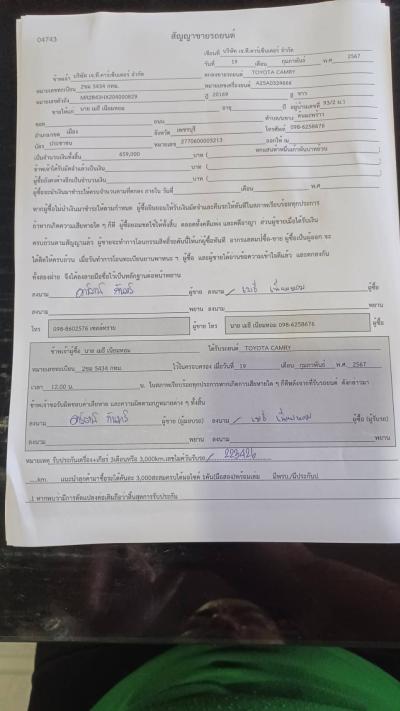 04743
สัญญาขายรถยนต์
เขียนที่ บริษัท เจ.ที.คาร์เซ็นเตอร์ จำกัด
วันที่ 19 เดือน กุมภาพันธ์ พ.ศ. 2567
ข้าพเจ้า บริษัท เจ.ที.คาร์เซ็นเตอร์ จำกัด ตกลงขายรถยนต์ TOYOTA CAMRY
หมายเลขทะเบียน 2ขผ 5434 กทม. หมายเลขเครื่องยนต์ A25A0334668
หมายเลขตัวถัง ปี 20169 สี ขาว
ขายให้แก่ นาย เมธี เนียมหอม อายุ ปี อยู่บ้านเลขที่ 93/2 ม.
ซอย ถนน ตำบล/แขวง
อำเภอ/เขต เมือง จังหวัด เพชรบุรี โทรศัพท์ 098-6258676
บัตร ประชาชน หมายเลข 2770600003213 ออกให้ ณ
เป็นจำนวนเงินทั้งสิ้น 659,000 บาท ( หกแสนห้าหมื่นเก้าพันบาทถ้วน
ข้าพเจ้าได้รับมัดจำแล้วเป็นเงิน บาท (
ผู้ซื้อยังคงค้างอีกเป็นจำนวนเงิน บาท (
ผู้ซื้อจะนำเงินมาชำระให้ครบจำนวนตามที่ตกลง ภายใน วันที่ เดือน พ.ศ.
หากผู้ซื้อไม่นำเงินมาชำระได้ตามกำหนด ผู้ซื้อยินยอมให้ริบเงินมัดจำและคืนรถให้ทันทีในสภาพเรียบร้อยทุกประการ
ถ้าหากเกิดความเสียหายใด ๆ ก็ดี ผู้ซื้อยอมชดใช้ให้ทั้งสิ้น ตลอดทั้งคดีแพ่ง และคดีอาญา ส่วนผู้ขายเมื่อได้รับเงิน
ครบถ้วนตามสัญญาแล้ว ผู้ขายจะทำการโอนกรรมสิทธิ์รถคันนี้ให้แก่ผู้ซื้อทันที
ทั้งสองฝ่าย จึงได้ลงลายมือชื่อไว้เป็นหลักฐานต่อหน้าพยาน
ลงนาม ผู้ขาย ลงนาม เมธี เนียมหอม ผู้ซื้อ
ลงนาม พยาน ลงนาม พยาน
โทร 098-8602576 เซลล์ทราย ผู้ขาย โทร นาย เมธี เนียมหอม 098-6258676 ผู้ซื้อ
ข้าพเจ้าผู้ซื้อ นาย เมธี เนียมหอม ได้รับรถยนต์ TOYOTA CAMRY
หมายเลขทะเบียน 2ขผ 5434 กทม. ไว้ในครอบครอง เมื่อวันที่ 19 เดือน กุมภาพันธ์ พ.ศ. 2567
เวลา 12.00 น. น. ในสภาพเรียบร้อยทุกประการหากเกิดการเสียหายใด ๆ ก็ดีหลังจากที่รับรถยนต์ ดังกล่าวมา
ข้าพเจ้าขอรับผิดชอบค่าเสียหาย และความผิดตามกฎหมายต่าง ๆ ทั้งสิ้น
ลงนาม ผู้ขาย (ผู้มอบรถ) ลงนาม เมธี เนียมหอม ผู้ซื้อ (ผู้รับรถ)
ลงนาม พยาน ลงนาม พยาน
หมายเหตุ รับประกันเครื่อง+เกียร์ 3เดือนหรือ 3,000km.เลขไมล์วันรับรถ 223426
....km.
.1 หากพบว่ามีการดัดแปลงต่อเติมถือว่าสิ้นสุดการรับประกัน